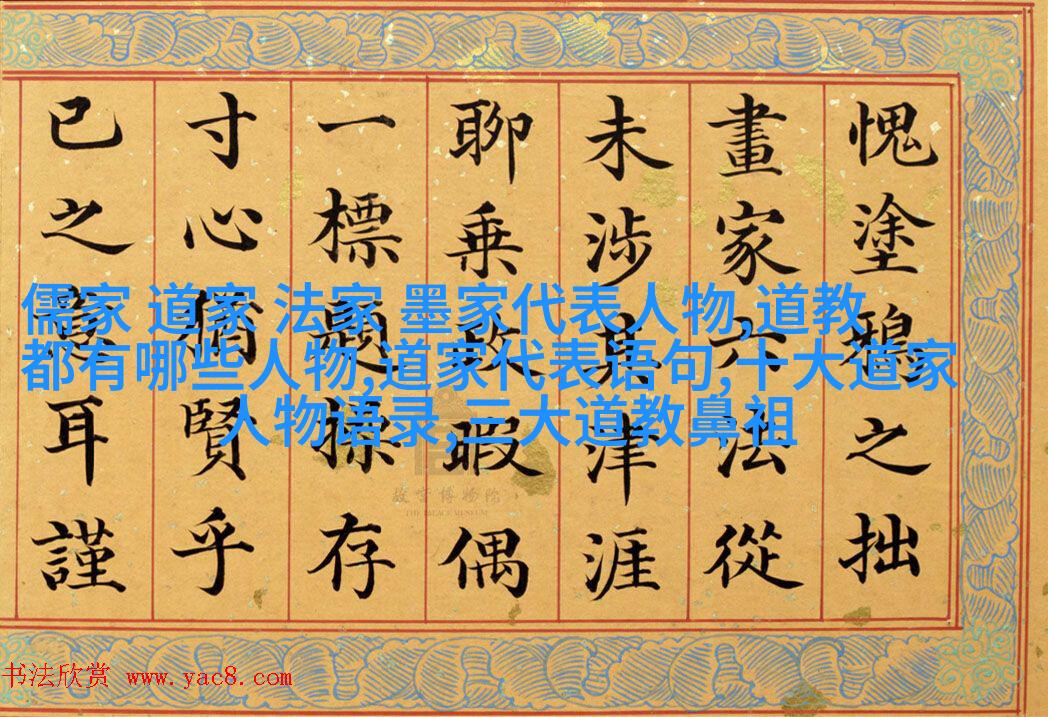 愧塗鴉之拙
畫家六法從
未涉其津涯
聊乘政暇偶
一標題操存
寸心賢乎
已之耳謹
儒家 道家 法家 墨家代表人物,道教
都有哪些人物,道家代表语句,十大道家
人物语录,三大道教鼻祖
故宫博物院
THE PALACE MUSEUM
书法欣赏 www.yac8.com